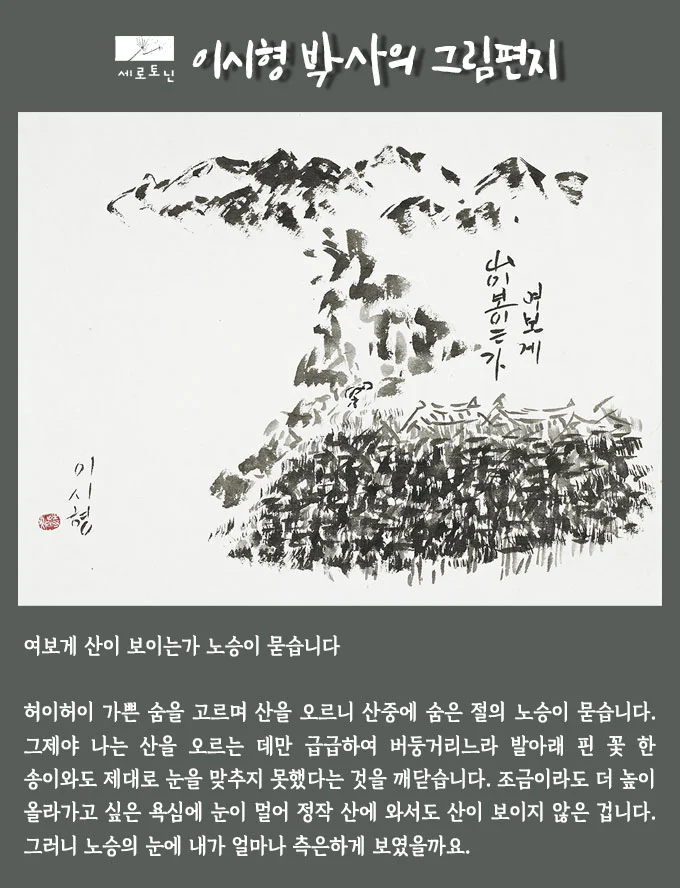 세로토닌
이시형 박사의 그림편지
여보게
山이보이는가
이시형
여보게 산이 보이는가 노승이 묻습니다
허이허이 가쁜 숨을 고르며 산을 오르니 산중에 숨은 절의 노승이 묻습니다.
그제야 나는 산을 오르는 데만 급급하여 버둥거리느라 발아래 핀 꽃 한
송이와도 제대로 눈을 맞추지 못했다는 것을 깨닫습니다. 조금이라도 더 높이
올라가고 싶은 욕심에 눈이 멀어 정작 산에 와서도 산이 보이지 않은 겁니다.
그러니 노승의 눈에 내가 얼마나 측은하게 보였을까요.